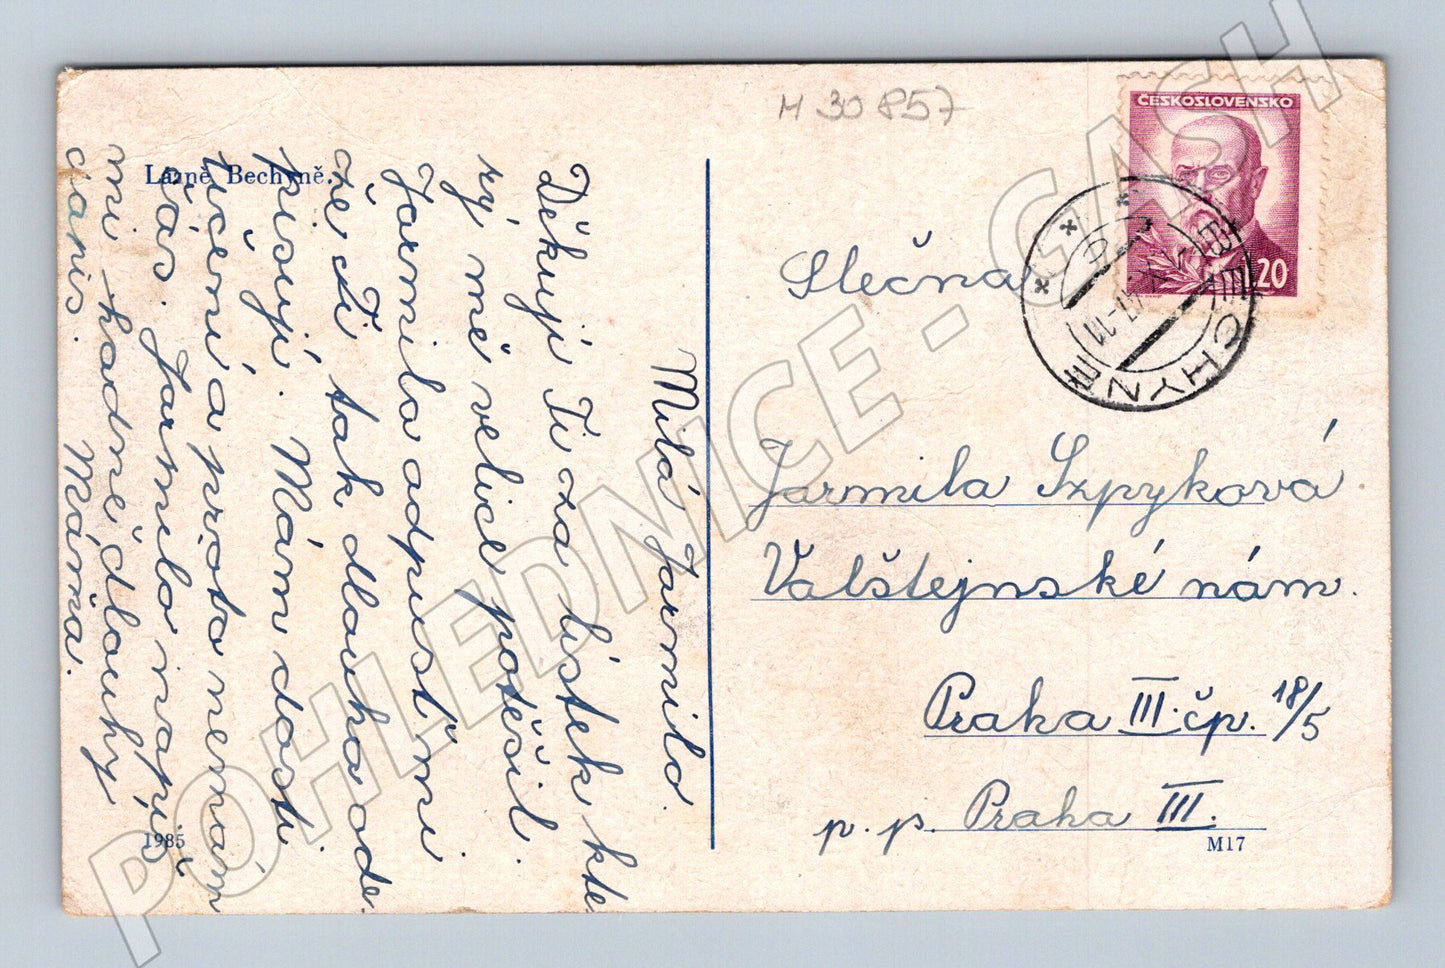 M 30857
ČESKOSLOVENSKO
1.20
BECHYNĚ
Lázně Bechyně.
Slečna
Jarmila Szpyková
Valštejnské nám.
Praha III. čp. 18/5
p. p. Praha III.
M17
1985
Milá Jarmilo.
Děkuji Ti za lístek kte
rý mě velice potěšil.
Jarmila odpusť mi
že Ti tak dlouho ode
pisuji. Mám dosti
učení a proto nemám
čas. Jarmilo napiš
mi hodně dlouhý
Máňa.
POHLEDNICE - CASH